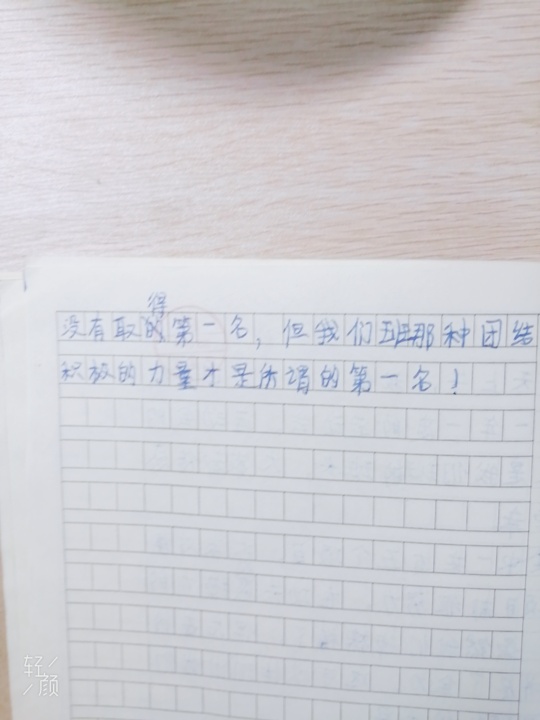 得
没有取的第一名，但我们班那种团结
积极的力量才是所谓的第一名！
轻颜